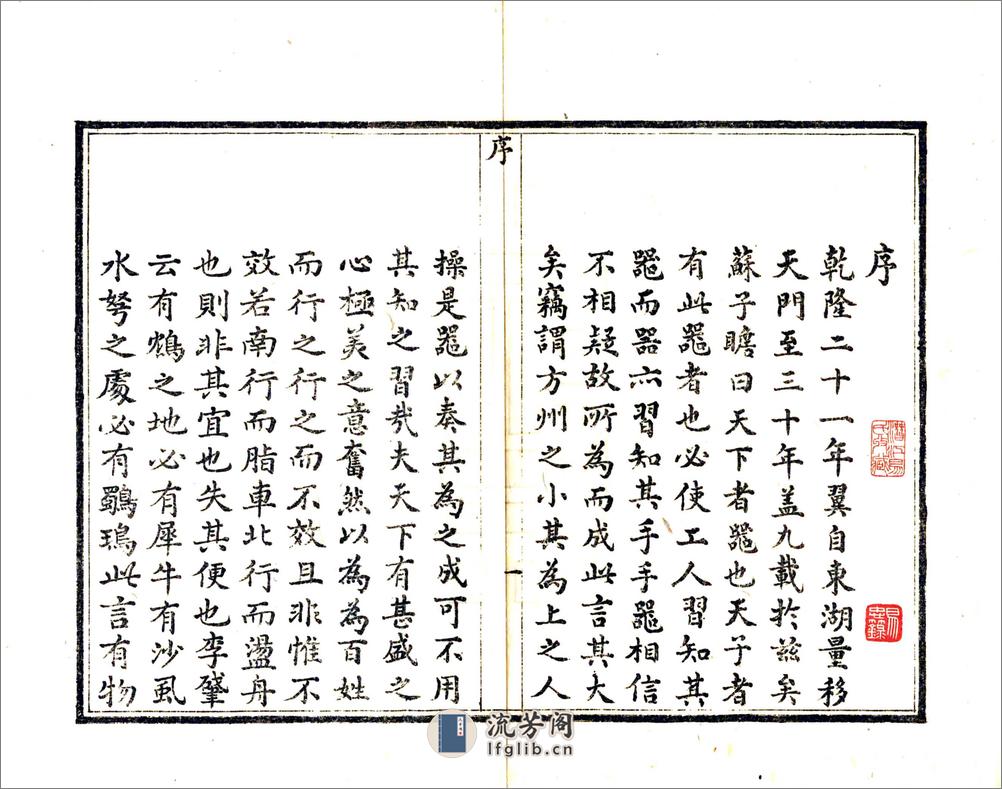 序
乾隆二十一年翼自東湖量移
天門至三十年盖九載於兹矣
蘇子瞻曰天下者噐也天子者
有此噐者也必使工人習知其
噐而器亦習知其手手噐相信
不相疑故所為而成此言其大
矣竊謂方州之小其為上之人
序
一
操是噐以奏其為之成可不用
其知之習哉夫天下有甚盛之
心極美之意奮然以為為百姓
而行之行之而不效且非惟不
效若南行而脂車北行而盪舟
也則非其宜也失其便也李肇
云有鴆之地必有犀牛有沙虱
水弩之處必有鸀鳿此言有物
流芳阁
lfglib.cn